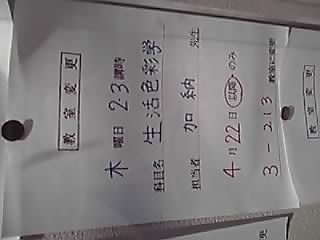 教室変更
木 曜日 2・3 講時
科目名 生活色彩学
担当者 加納 先生
4 月 22 日 以降 のみ
3-213 教室に変更
教室変更